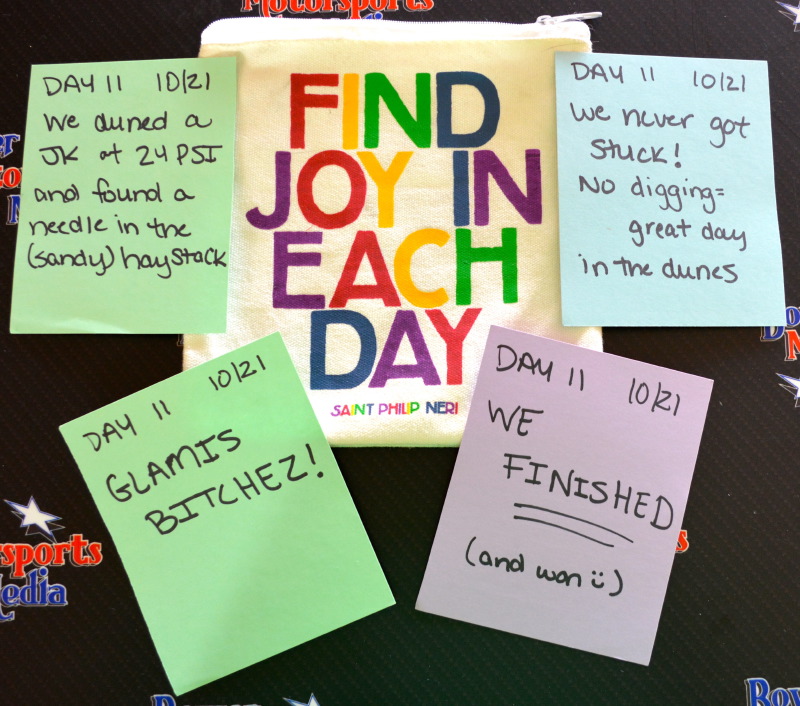 Motorsports
Media
DAY 11 10/21
We duned a
JK at 24 PSI
and found a
needle in the
(sandy) haystack
FIND
JOY IN
EACH
DAY
SAINT PHILIP NERI
DAY 11 10/21
We never got
stuck!
No digging=
great day
in the dunes
DAY 11 10/21
GLAMIS
BITCHEZ!
DAY 11 10/21
WE
FINISHED
(and won ü)